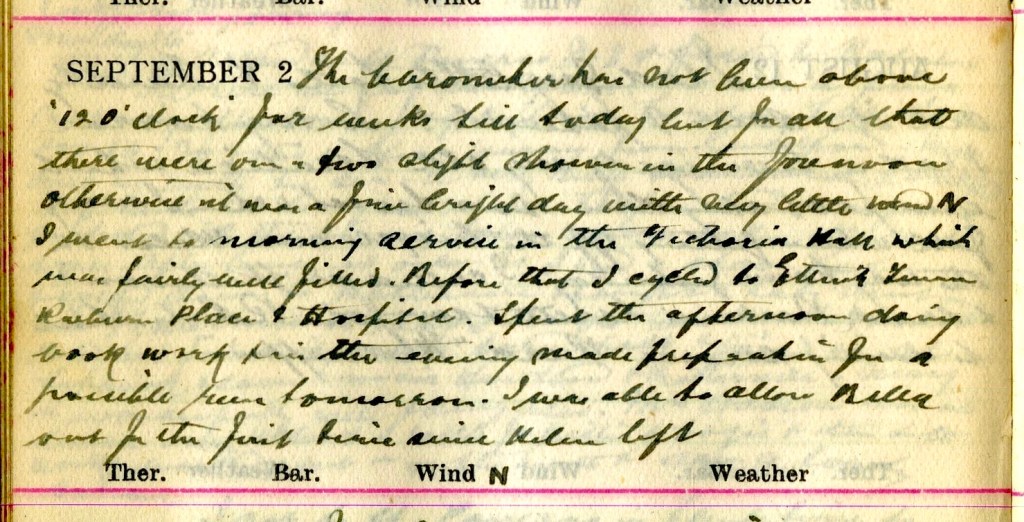 Ther. Bar. Wind Weather
SEPTEMBER 2 The barometer has not been above
'12 O'clock' for weeks till today but for all that
there were one or two slight showers in the forenoon
otherwise it was a fine bright day with very little wind N
I went to morning service in the Victoria Hall which
was fairly well filled. Before that I cycled to Ettrick Terrace
Raeburn Place & Hospital. Spent the afternoon doing
book work & in the evening made preparation for a
possible run tomorrow. I was able to allow Bella
out for the first time since Helen left
Ther. Bar. Wind N Weather